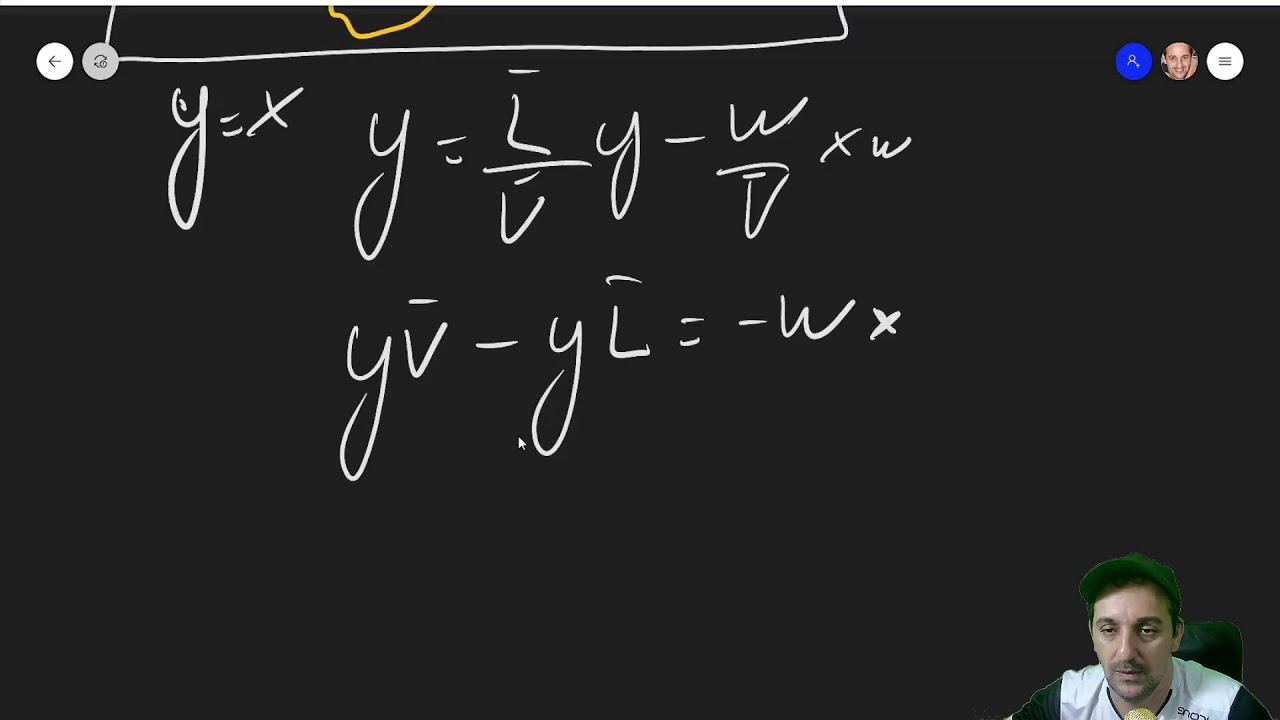 y=x y = L̄/V̄ y − W/V̄ xw
yV̄ − yL̄ = −Wx